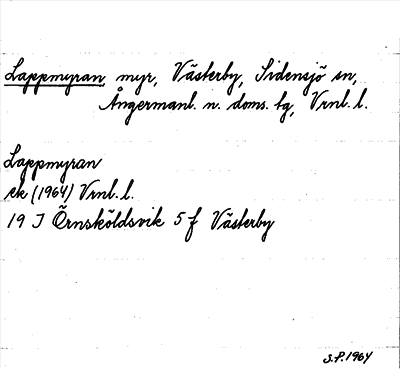 Lappmyran myr, Västerby, Sidensjö sn,
Ångermanl. n. doms. tg, Vrnl. l.
Lappmyran
ek (1964) Vrnl. l.
19 J Örnsköldsvik 5 f Västerby
S.P. 1964